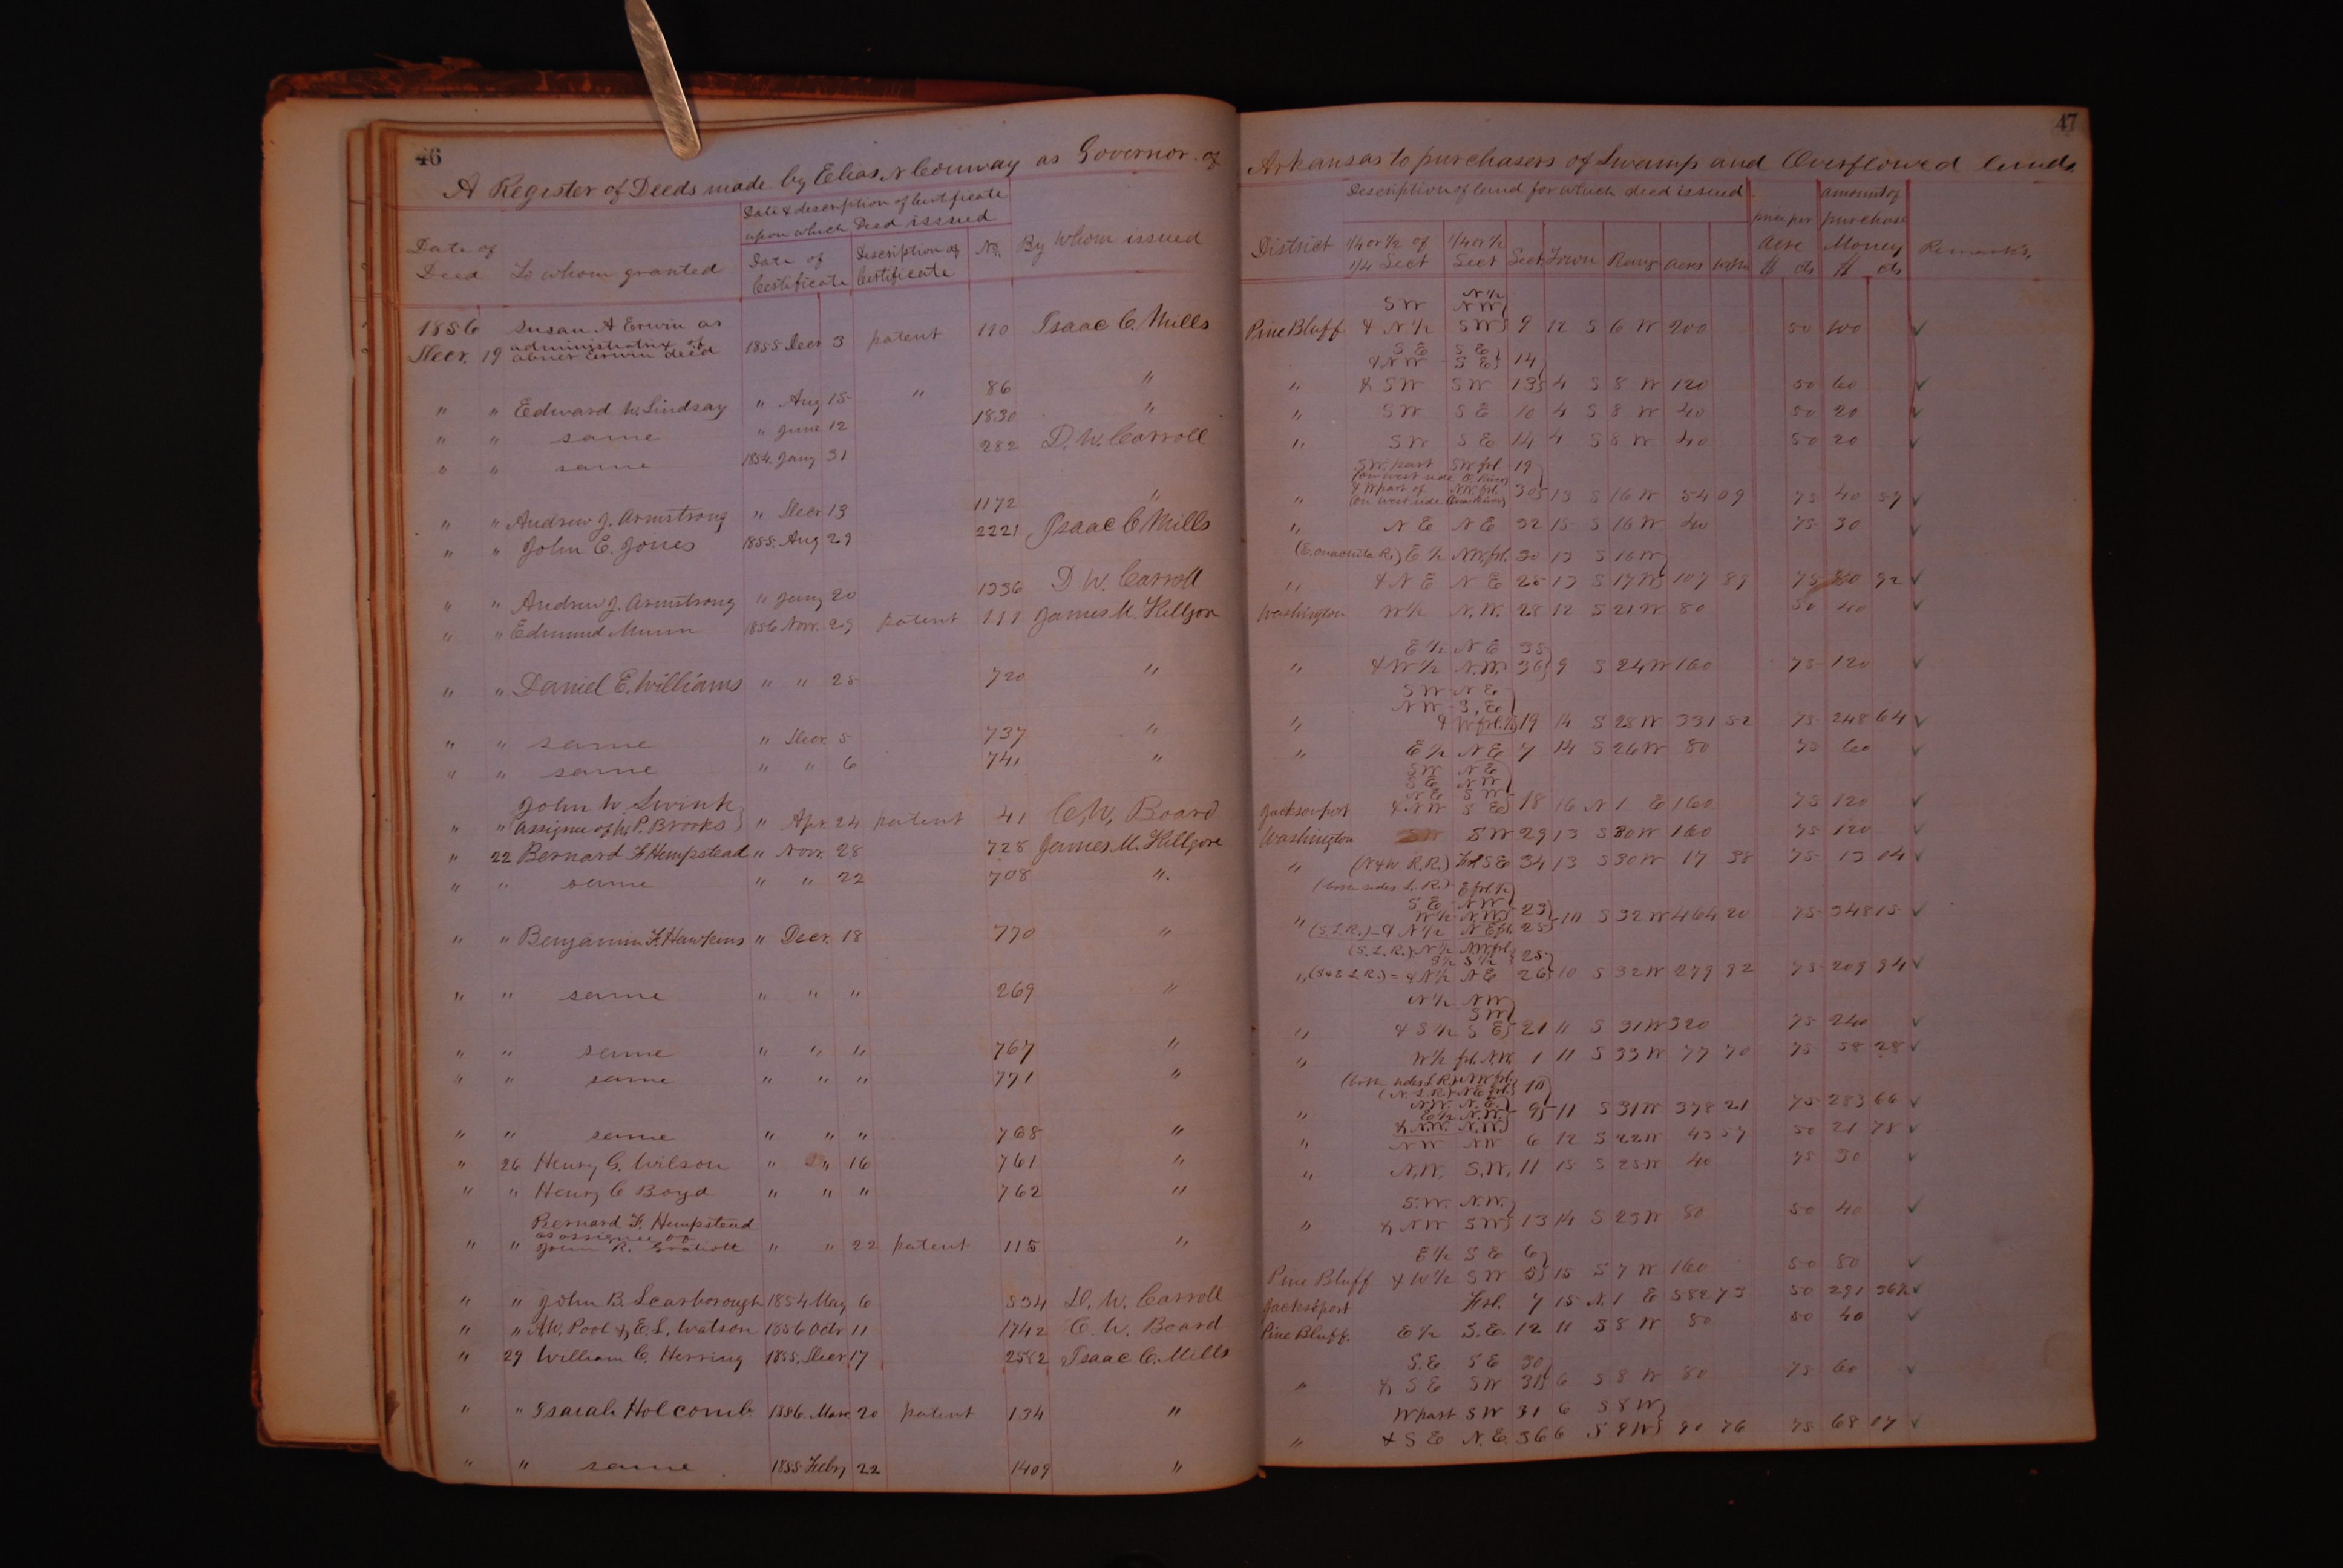 46
A Register of Deeds made by Elias N Conway as Governor of
Date of Deed
To whom granted
Date & description of Certificate upon which Deed issued
Date of Certificate
Description of Certificate
No.
By Whom issued
1856 Susan A Erwin as
Decr. 19 administratrix of abner Erwin dec'd 1855 Decr 3 patent 110 Isaac C Mills
" " Edward W. Lindsay " Aug 15 " 86 "
" " same " June 12 1830 "
" " same 1854 Jany 31 282 D. W. Carroll
" " Andrew J. Armstrong " Decr 13 1172 "
" " John E. Jones 1855. Aug 29 2221 Isaac C Mills
" " Andrew J. Armstrong " Jany 20 1336 D W. Carroll
" " Edmund Munn 1856 Nov. 29 patent 111 James M. Killgore
" " Daniel E. Williams " " 28 720 "
" " same " Decr. 5 737 "
" " same " " 6 741 "
John W Swink
" " assignee of W. P. Brooks } " Apr. 24 patent 41 C. W. Board
" 22 Bernard F Hempstead " Nov. 28 728 James M. Killgore
" " same " " 22 708 "
" " Benjamin F. Hawkins " Decr. 18 770 "
" " same " " " 269 "
" " same " " " 767 "
" " same " " " 771 "
" " same " " " 768 "
" 26 Henry G. Wilson " " 16 761 "
" " Henry C Boyd " " " 762 "
Bernard F. Hempstead
as assignee of
" " John R. Gratiott " " 22 patent 115 "
" " John B. Scarborough 1854 May 6 534 D. W. Carroll
" " A.W. Pool & E. L. Watson 1856 Octr 11 1742 C. W. Board
" 29 William C. Herring 1855. Decr 17 2582 Isaac C. Mills
" " Isaiah Holcomb 1856. Marc 20 patent 134 "
" " same 1855 Feby 22 1409 "
47
Arkansas to purchasers of Swamp and Overflowed lands
Description of land for which deed issued
District
1/4 or 1/2 of 1/4 Sect
1/4 or 1/2 Sect
Sect
Town
Rang
acres
price per acre $ cts
amount of purchase Money $ cts
Remarks.
N 1/2
SW NW
Pine Bluff & N 1/2 SW } 9 12 S 6 W 200 50 100 ✓
S E S E
& NW S E } 14
" & SW SW 13 } 4 S 8 W 120 50 60 ✓
" SW S E 10 4 S 8 W 40 50 20 ✓
" SW S E 14 4 S 8 W 40 50 20 ✓
SW. part SW frl. 19
(on west side O. River)
& W part of NW. frl.
" (on west side Ouachita) 30 } 13 S 16 W 54 09 75 40 57 ✓
" N E N E 32 15 S 16 W 40 75 30 ✓
(E. Ouachita R.) E 1/2 NW. frl. 30 13 S 16 W
" & N E N E 25 13 S 17 W } 107 89 75 80 92 ✓
Washington W 1/2 N. W. 28 12 S 21 W. 80 50 40 ✓
E 1/2 N E 35
" & W 1/2 N. W. 36 } 9 S 24 W 160 75 120 ✓
S W N E
N W S. E. }
" & W frl. 1/2 19 14 S 25 W 331 52 75 248 64 ✓
" E 1/2 N E 7 14 S 26 W 80 75 60 ✓
SW N E
S E N W
N E S W
Jacksonport & N W S E } 18 16 N 1 E 160 75 120 ✓
Washington SW 29 13 S 30 W 160 75 120 ✓
" (N & W R. R.) Frl S E 34 13 S 30 W 17 38 75 13 04 ✓
(both sides L. R.) E frl. 1/2
S E N W
W 1/2 N W 23
" (S. L. R.) & N 1/2 N E frl. 25 } 10 S 32 W 464 20 75 348 15 ✓
(S. L. R.) N 1/2 NW frl.
S 1/2 } 25
" (S & E L. R.) = & N 1/2 N E 26 } 10 S 32 W 279 92 75 209 94 ✓
N 1/2 N W
S W
" & S 1/2 S E } 21 11 S 31 W 320 75 240 ✓
" W 1/2 frl. N.W. 1 11 S 33 W 77 70 75 58 28 ✓
(both sides L R) NW frl.
(N. L. R.) N E frl. } 10
N.W. N. E.
E 1/2 N. W. 9 } 11 S 31 W 378 21 75 283 66 ✓
& N.W. N.W.
" N W N W 6 12 S 22 W 43 57 50 21 78 ✓
" N. W. S. W. 11 15 S 25 W 40 75 30 ✓
S. W. N. W.
" & N W S W } 13 14 S 23 W 80 50 40 ✓
E 1/2 S E 6
Pine Bluff & W 1/2 S W 5 } 15 S 7 W 160 50 80 ✓
Jacksonport Frl. 7 15 N. 1 E 582 73 50 291 36 1/2 ✓
Pine Bluff. E 1/2 S. E. 12 11 S 8 W 80 50 40 ✓
S. E. S E 30
" & S E S W 31 } 6 S 8 W 80 75 60 ✓
W part S W 31 6 S 8 W
" & S E N. E. 36 6 S 9 W } 90 76 75 68 07 ✓